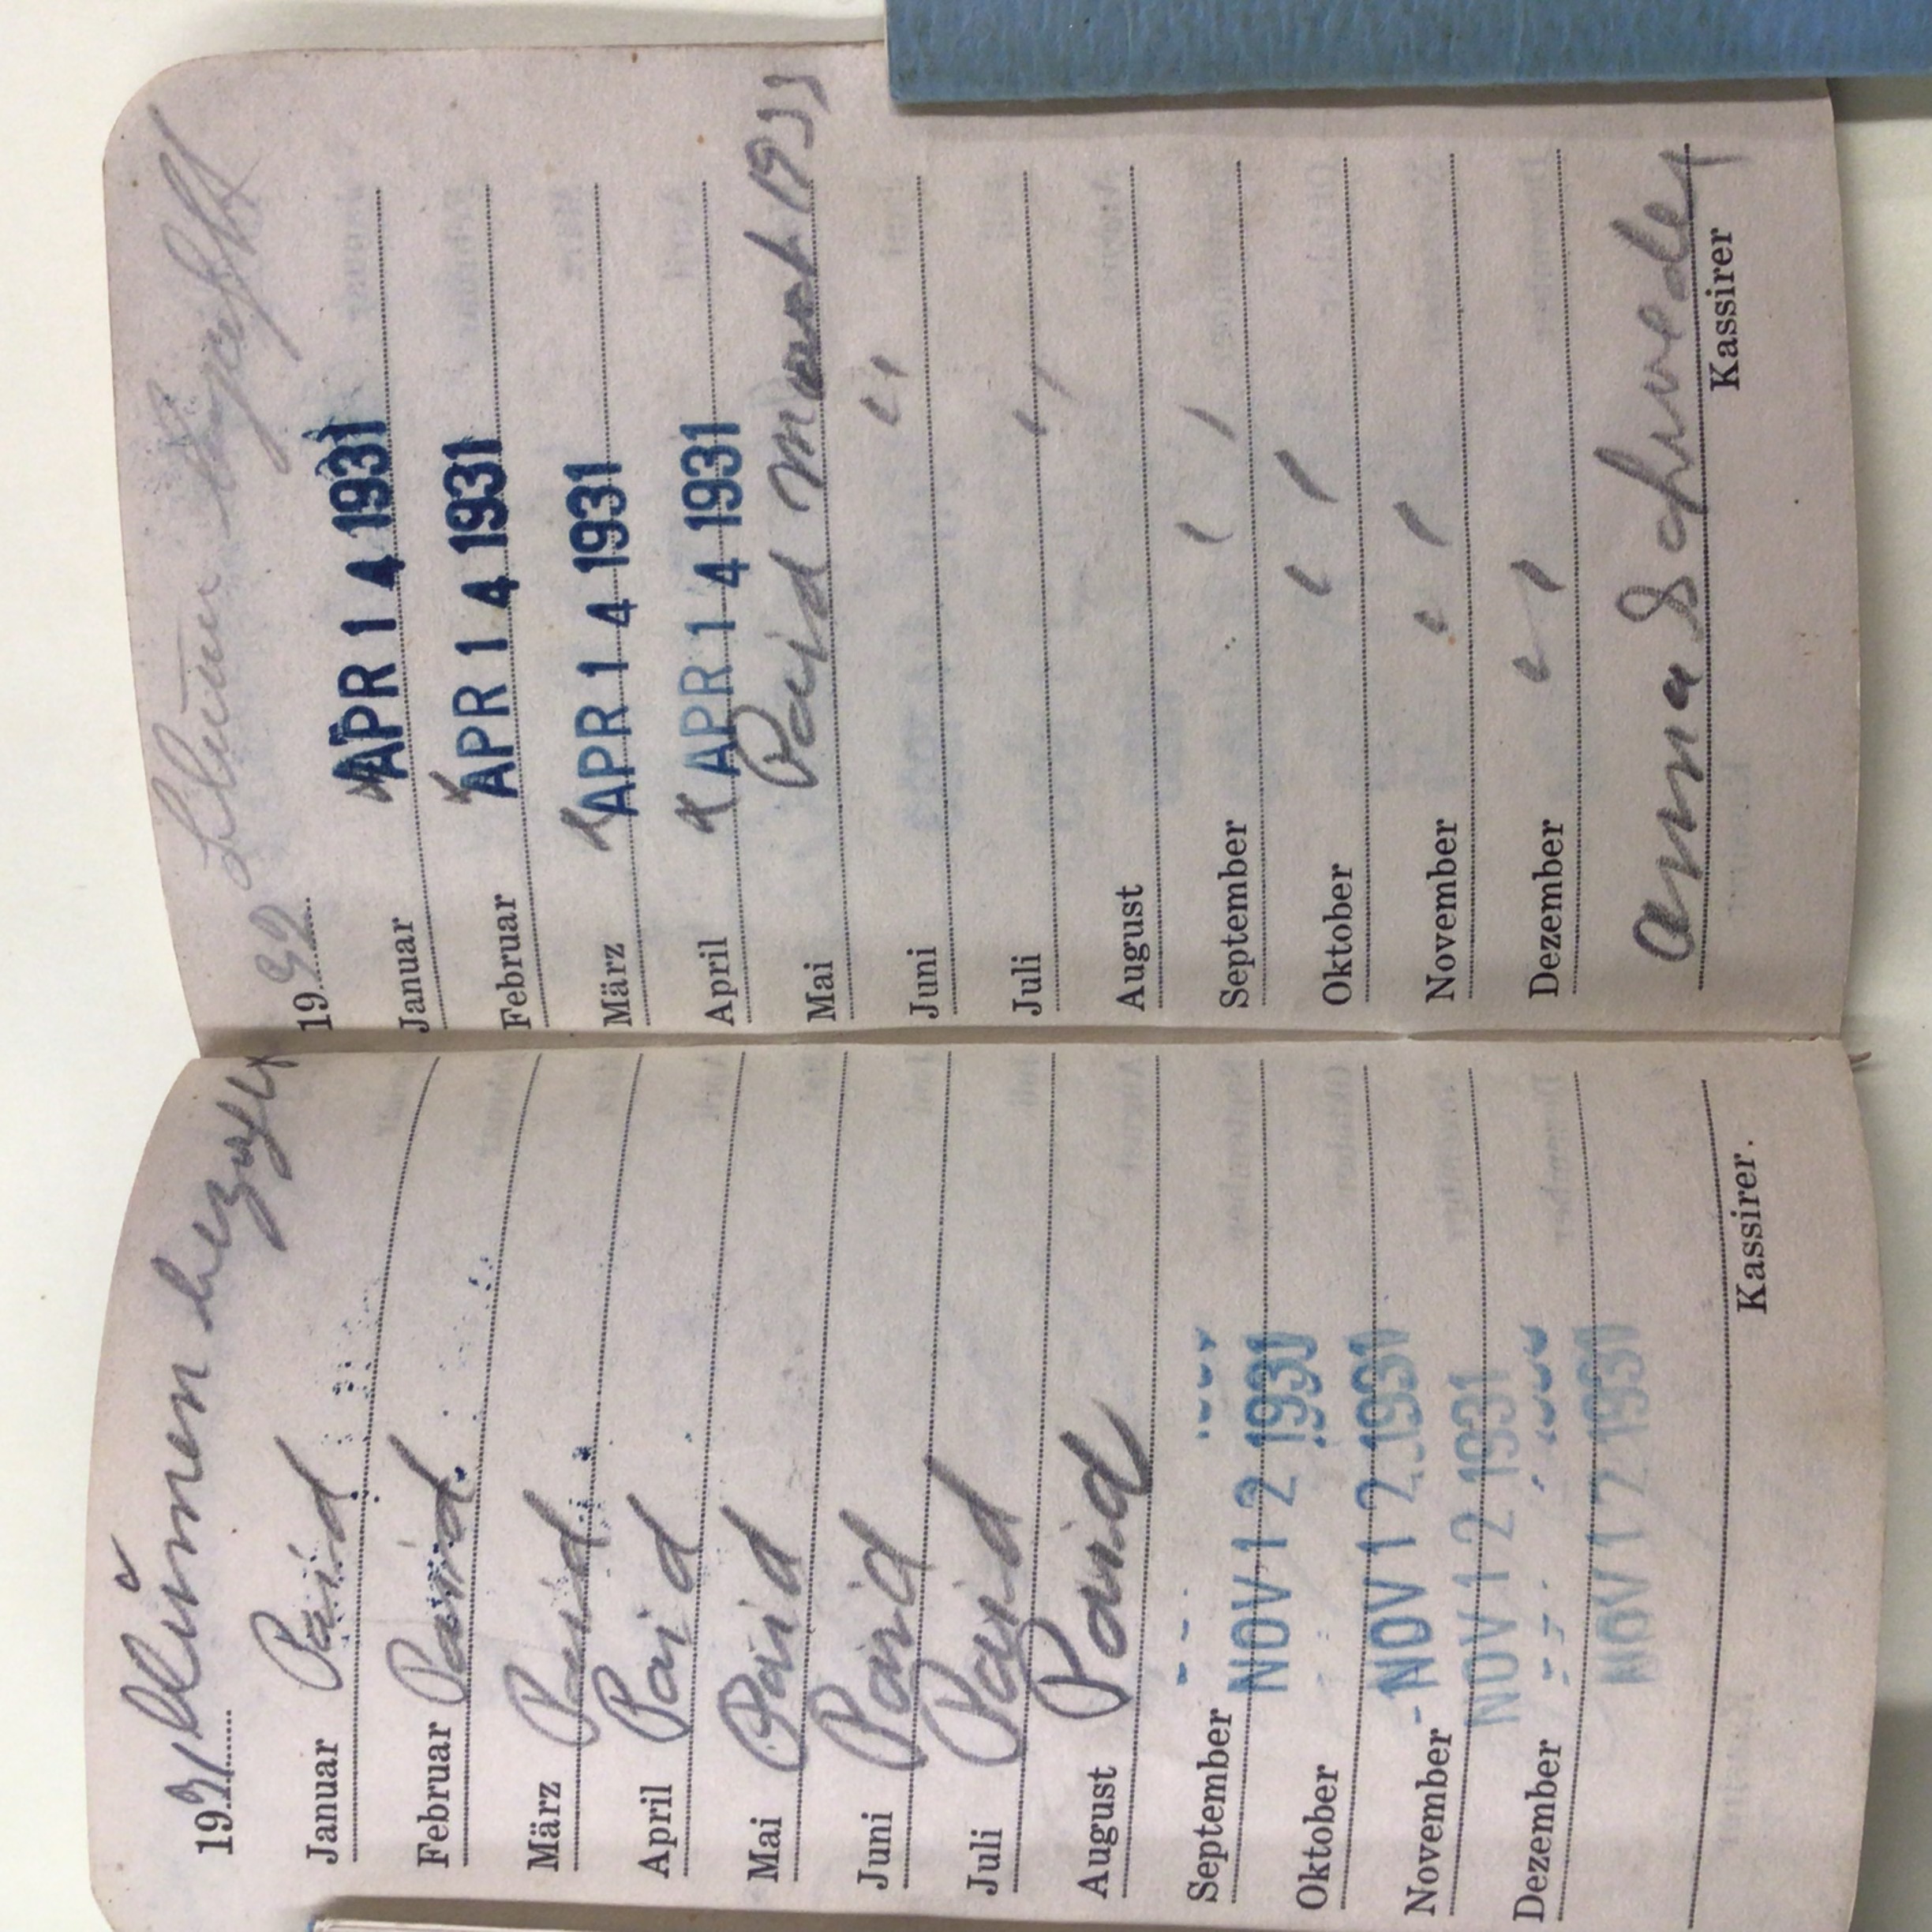 1931 Blumen bezahlt
Januar Paid
Februar Paid
März Paid
April Paid
Mai Paid
Juni Paid
Juli Paid
August Paid
September NOV 12 1931
Oktober NOV 12 1931
November NOV 12 1931
Dezember NOV 12 1931
Kassirer.
1932 Blumen bezahlt
Januar APR 14 1931
Februar APR 14 1931
März APR 14 1931
April APR 14 1931
Mai Paid 1933
Juni "
Juli "
August
September "
Oktober "
November "
Dezember "
Anna Schweder
Kassirer